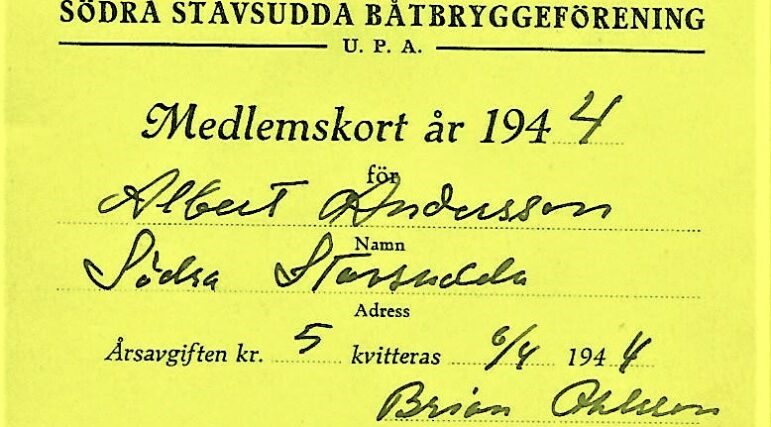 SÖDRA STAVSUDDA BÅTBRYGGEFÖRENING
U. P. A.
Medlemskort år 1944
för
Albert Andersson
Namn
Södra Stavsudda
Adress
Årsavgiften kr. 5 kvitteras 6/4 1944
Brian Ohlsson